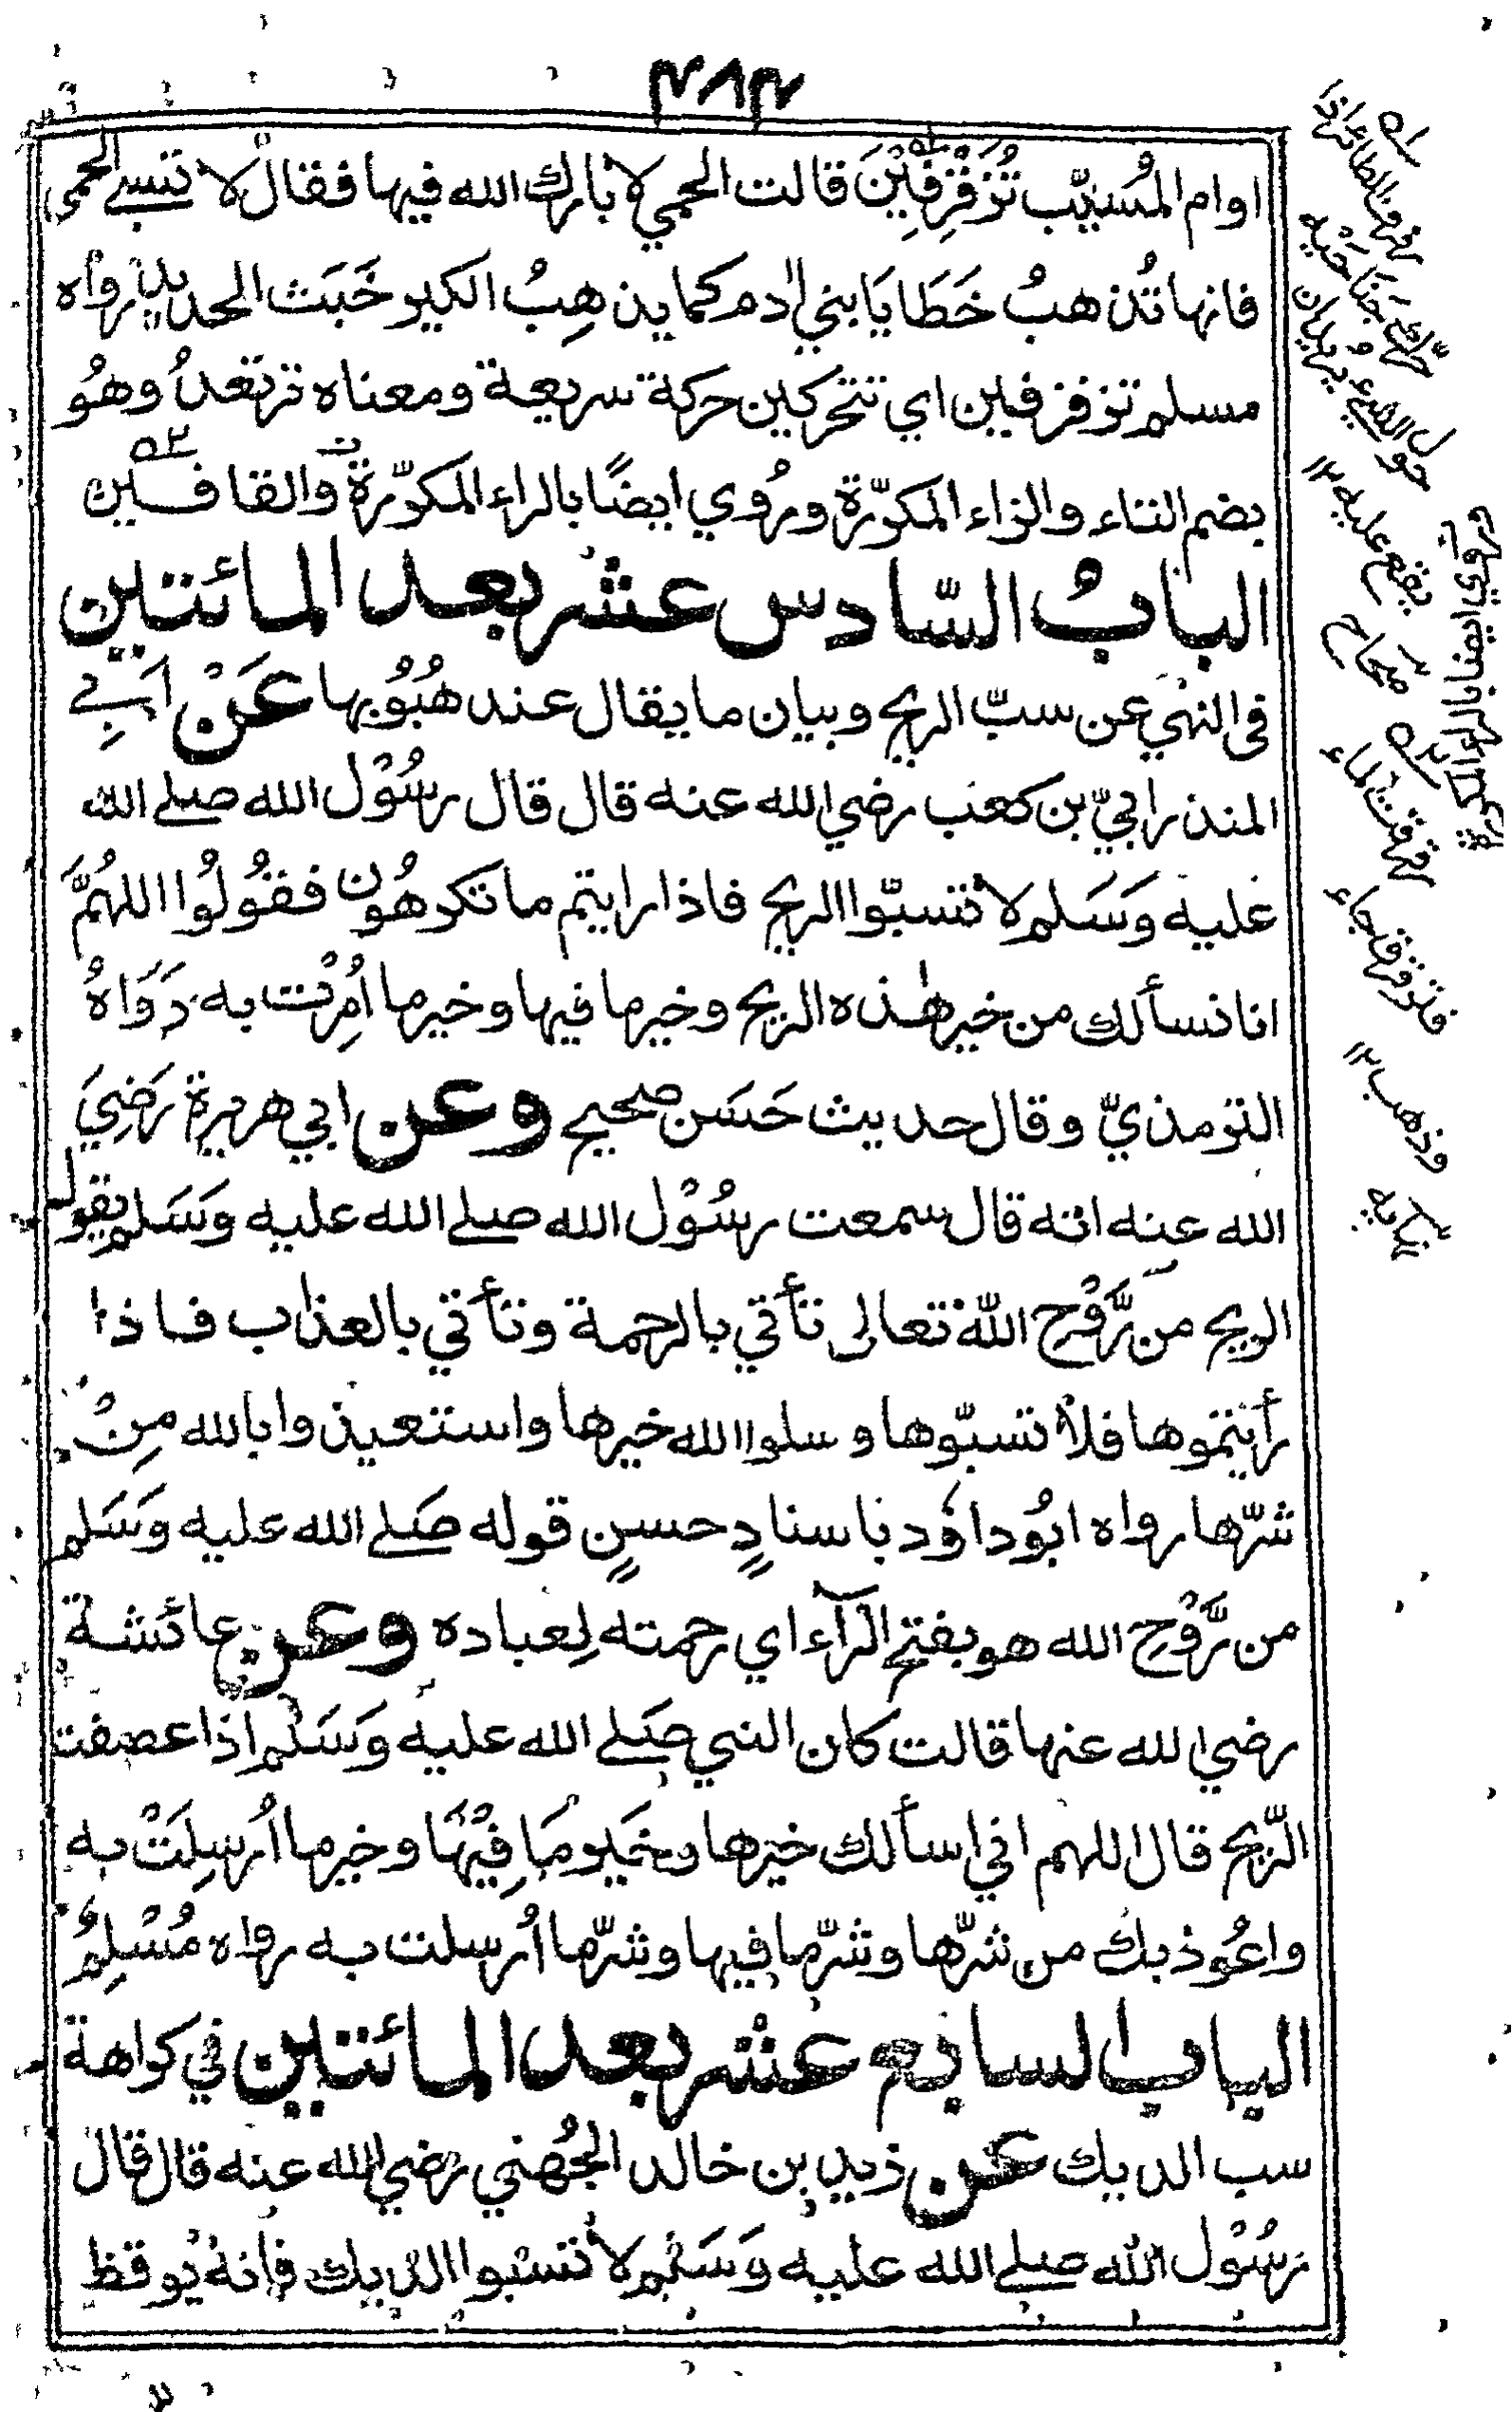 ٣٨٣
اوام المُسَيّب تُزَفْزِفِيْنَ قالت الحمي لا بارك الله فيها فقال لا تسبي الحمى
فانها تُذهبُ خَطَايَا بني اٰدم كما يذهِبُ الكير خَبَث الحديد رواه
مسلم تزفزفين اي تتحركين حركة سريعة ومعناه ترتعدُ وهُو
بضم التاء والزاء المكرّرة ورُوي ايضًا بالراء المكرّرة والقافين
البابُ السّادس عشر بعد المائتين
فى النهي عن سبّ الريح وبيان ما يقال عند هُبُوْبها عَنْ اَبِي
المنذر ابيّ بن كعب رضي الله عنه قال قال رسُوْل الله صلى الله
عليه وَسَلم لا تسبّوا الريح فاذا رايتم ما تكرهُون فقُولُوا اللهُمَّ
انا نسألك من خير هٰذه الريح وخير ما فيها وخير ما اُمِرْت به رَوَاهُ
الترمذيّ وقال حديث حَسَن صحيح وعن ابي هريرة رَضِيَ
الله عنه انه قال سمعت رسُوْل الله صلى الله عليه وَسَلم يقول
الريح من رَّوْح الله تعالى تأتي بالرحمة وتأتي بالعذاب فاذا
رأيتموها فلا تسبّوها وسلوا الله خيرها واستعيذوا بالله مِنْ
شرّها رواه ابُو داؤد باسنادٍ حسنٍ قوله صَلى الله عليه وَسَلم
من رَّوْح الله هو بفتح الرآء اي رحمته لِعباده وعن عائشة
رضي الله عنها قالت كان النبي صَلى الله عليه وَسَلم اذا عصفت
الرّيح قال اللهم اني اسألك خيرها وخير مَا فِيْهَا وخير ما اُرسِلَتْ به
واعُوذ بك من شرّها وشرّ ما فيها وشرّ ما اُرسلت به رواه مُسْلِمٌ
الباب السابع عشر بعد المائتين في كراهة
سب الديك عن زيد بن خالد الجُهني رضي الله عنه قال قال
رسُوْل الله صلى الله عليه وَسَلم لا تسبوا الديك فانه يوقظ
حول الشيء يريد ان
يقع عليه ١٢
صحاح
وذهب ١٢